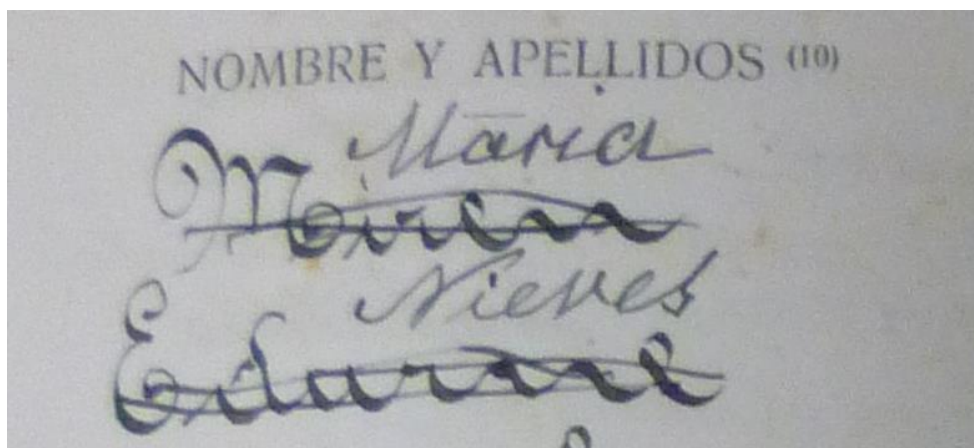 NOMBRE Y APELLIDOS (10)
Maria
Miren
Nieves
Edurne